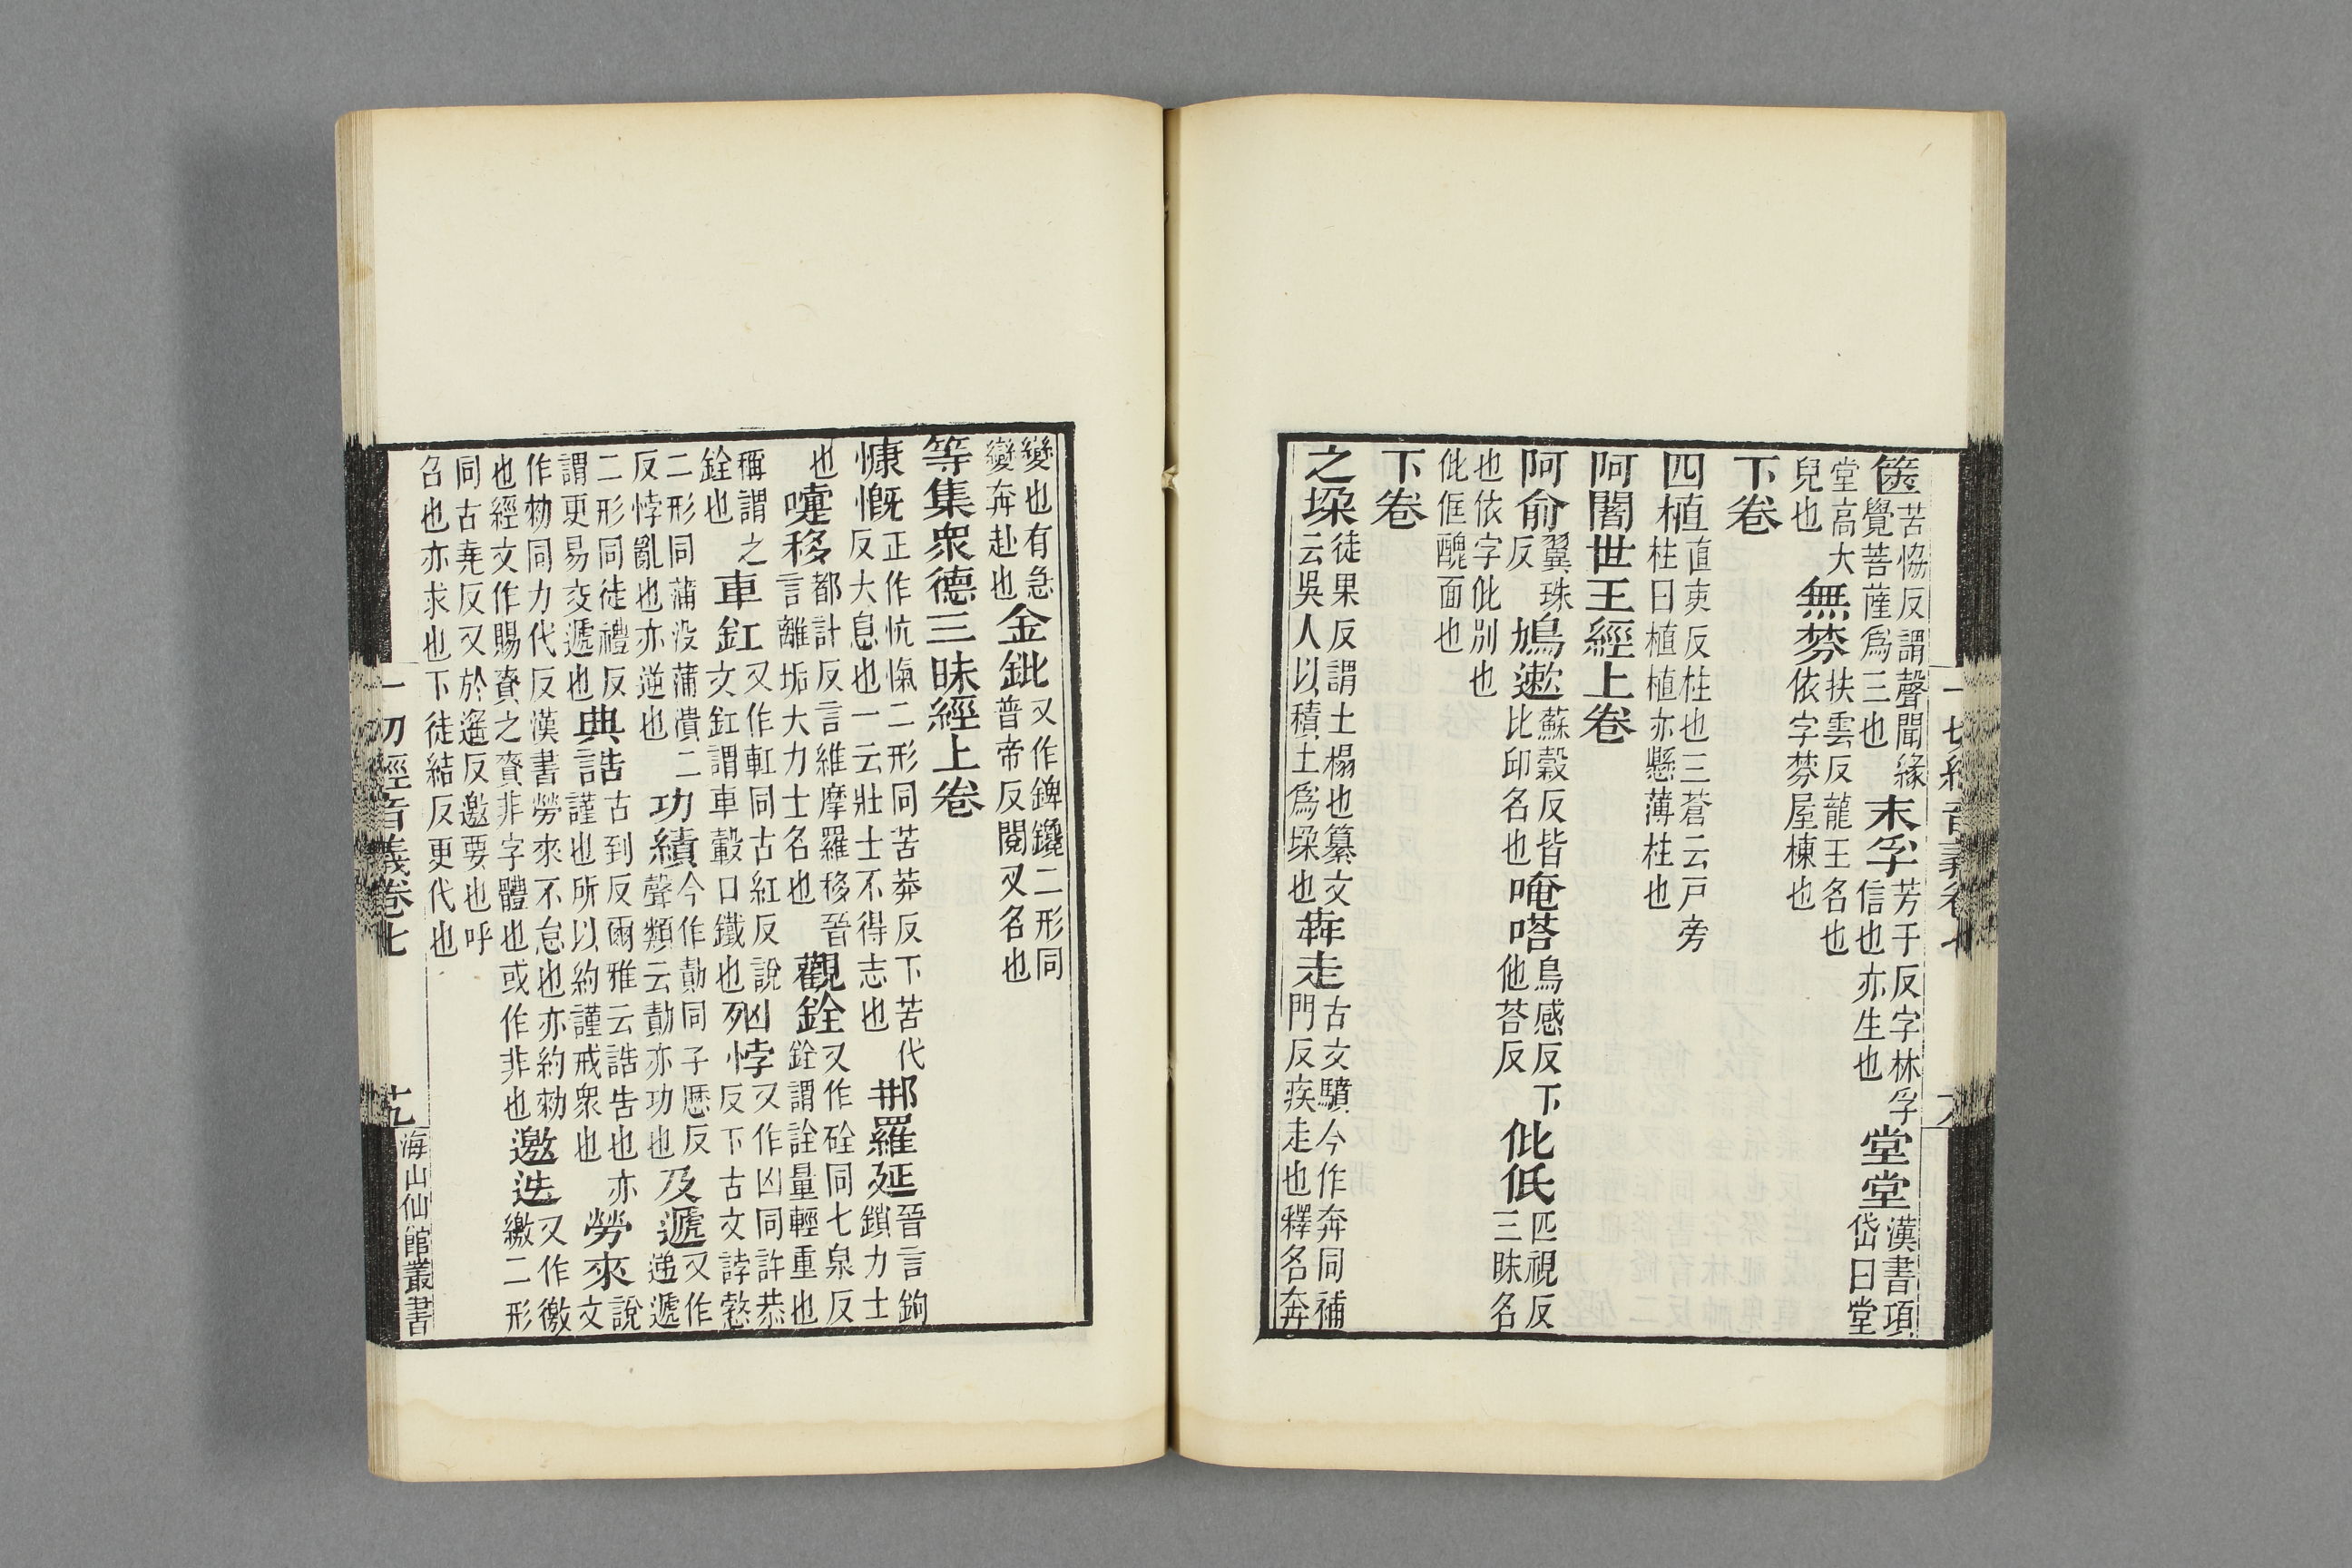 篋苦協反謂聲聞緣覺菩薩爲三也末孚芳于反字林孚信也亦生也堂堂漢書項岱曰堂
堂高大皃也無棼扶雲反龍王名也依字棼屋棟也
下卷
四植直吏反柱也三蒼云戸旁柱曰植植亦懸薄柱也
阿闍世王經上卷
阿俞翼珠反鳩遬蘇穀反皆比印名也唵嗒烏感反下他荅反仳低匹視反三昧名
也依字仳別也仳倠醜面也
下卷
之垜徒果反謂土榻也纂文云吳人以積土爲垜也犇走古文驞今作奔同補門反疾走也釋名奔
變也有急變奔赴也金鈚又作錍鑱二形同普帝反閱叉名也
等集衆德三昧經上卷
慷慨正作忼愾二形同苦莽反下苦代反大息也一云壯士不得志也那羅延晉言鉤鎖力士
也嚏移都計反言維摩羅移晉言離垢大力士名也觀銓又作硂同七泉反銓謂詮量輕重也
稱謂之銓也車釭又作軖同古紅反說文釭謂車轂口鐵也死凶悖又作凶同許恭反下古文誖愂
二形同蒲没蒲潰二反悖亂也亦逆也功績今作勣同子歷反聲類云勣亦功也及遞又作递遞
二形同徒禮反謂更易交遞也典誥古到反爾雅云誥告也亦謹也所以約謹戒衆也勞來說文
作勑同力代反漢書勞來不怠也亦約勑也經文作賜賚之賚非字體也或作非也邀迭又作徼繳二形
同古堯反又於遙反邀要也呼召也亦求也下徒結反更代也
一切經音義卷七
十九
海山仙館叢書